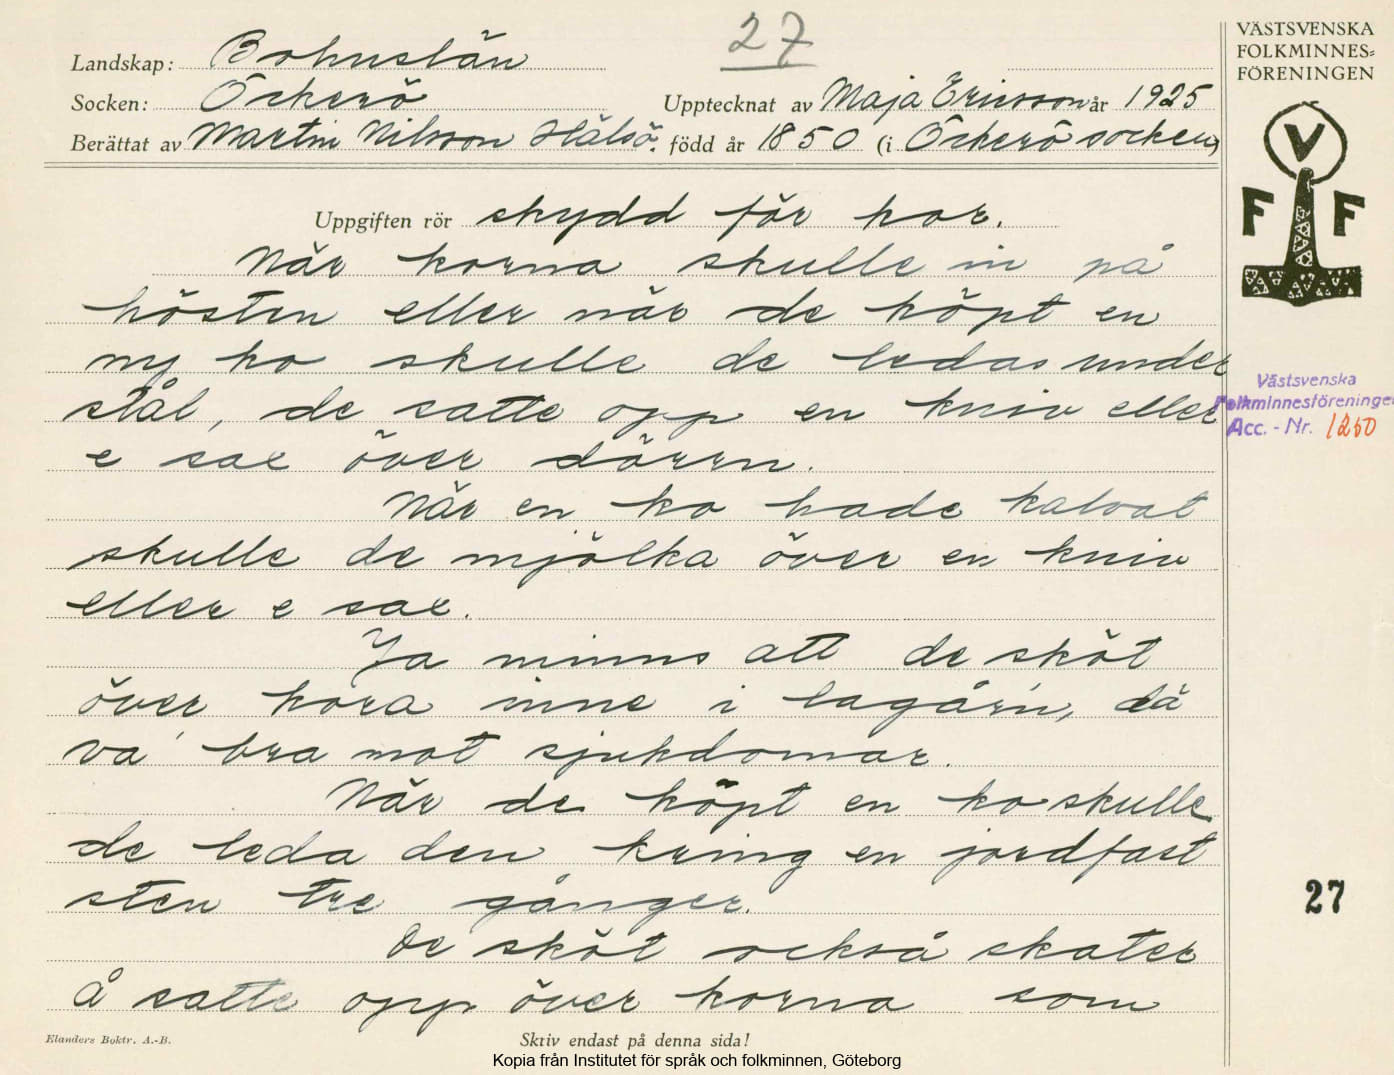 27
Landskap: Bohuslän
Socken: Öckerö
Upptecknat av Maja Ericsson år 1925
Berättat av Martin Nilsson Hälsö. född år 1850 (i Öckerö socken)
VÄSTSVENSKA
FOLKMINNES=
FÖRENINGEN
V
F F
Uppgiften rör skydd för kor.
När korna skulle in på
hösten eller när de köpt en
ny ko skulle de ledas under
stål, de satte opp en kniv eller
e sax över dörrn.
När en ko hade kalvat
skulle de mjölka över en kniv
eller e sax.
Ja minns att de sköt
över kora inne i lagårn, dä
va' bra mot sjukdomar.
När de köpt en ko skulle
de leda den kring en jordfast
sten tre gånger.
De sköt också skater
å satte opp över korna som
Västsvenska
Folkminnesföreningen
Acc. - Nr. 1250
27
Elanders Boktr. A.-B.
Skriv endast på denna sida!
Kopia från Institutet för språk och folkminnen, Göteborg